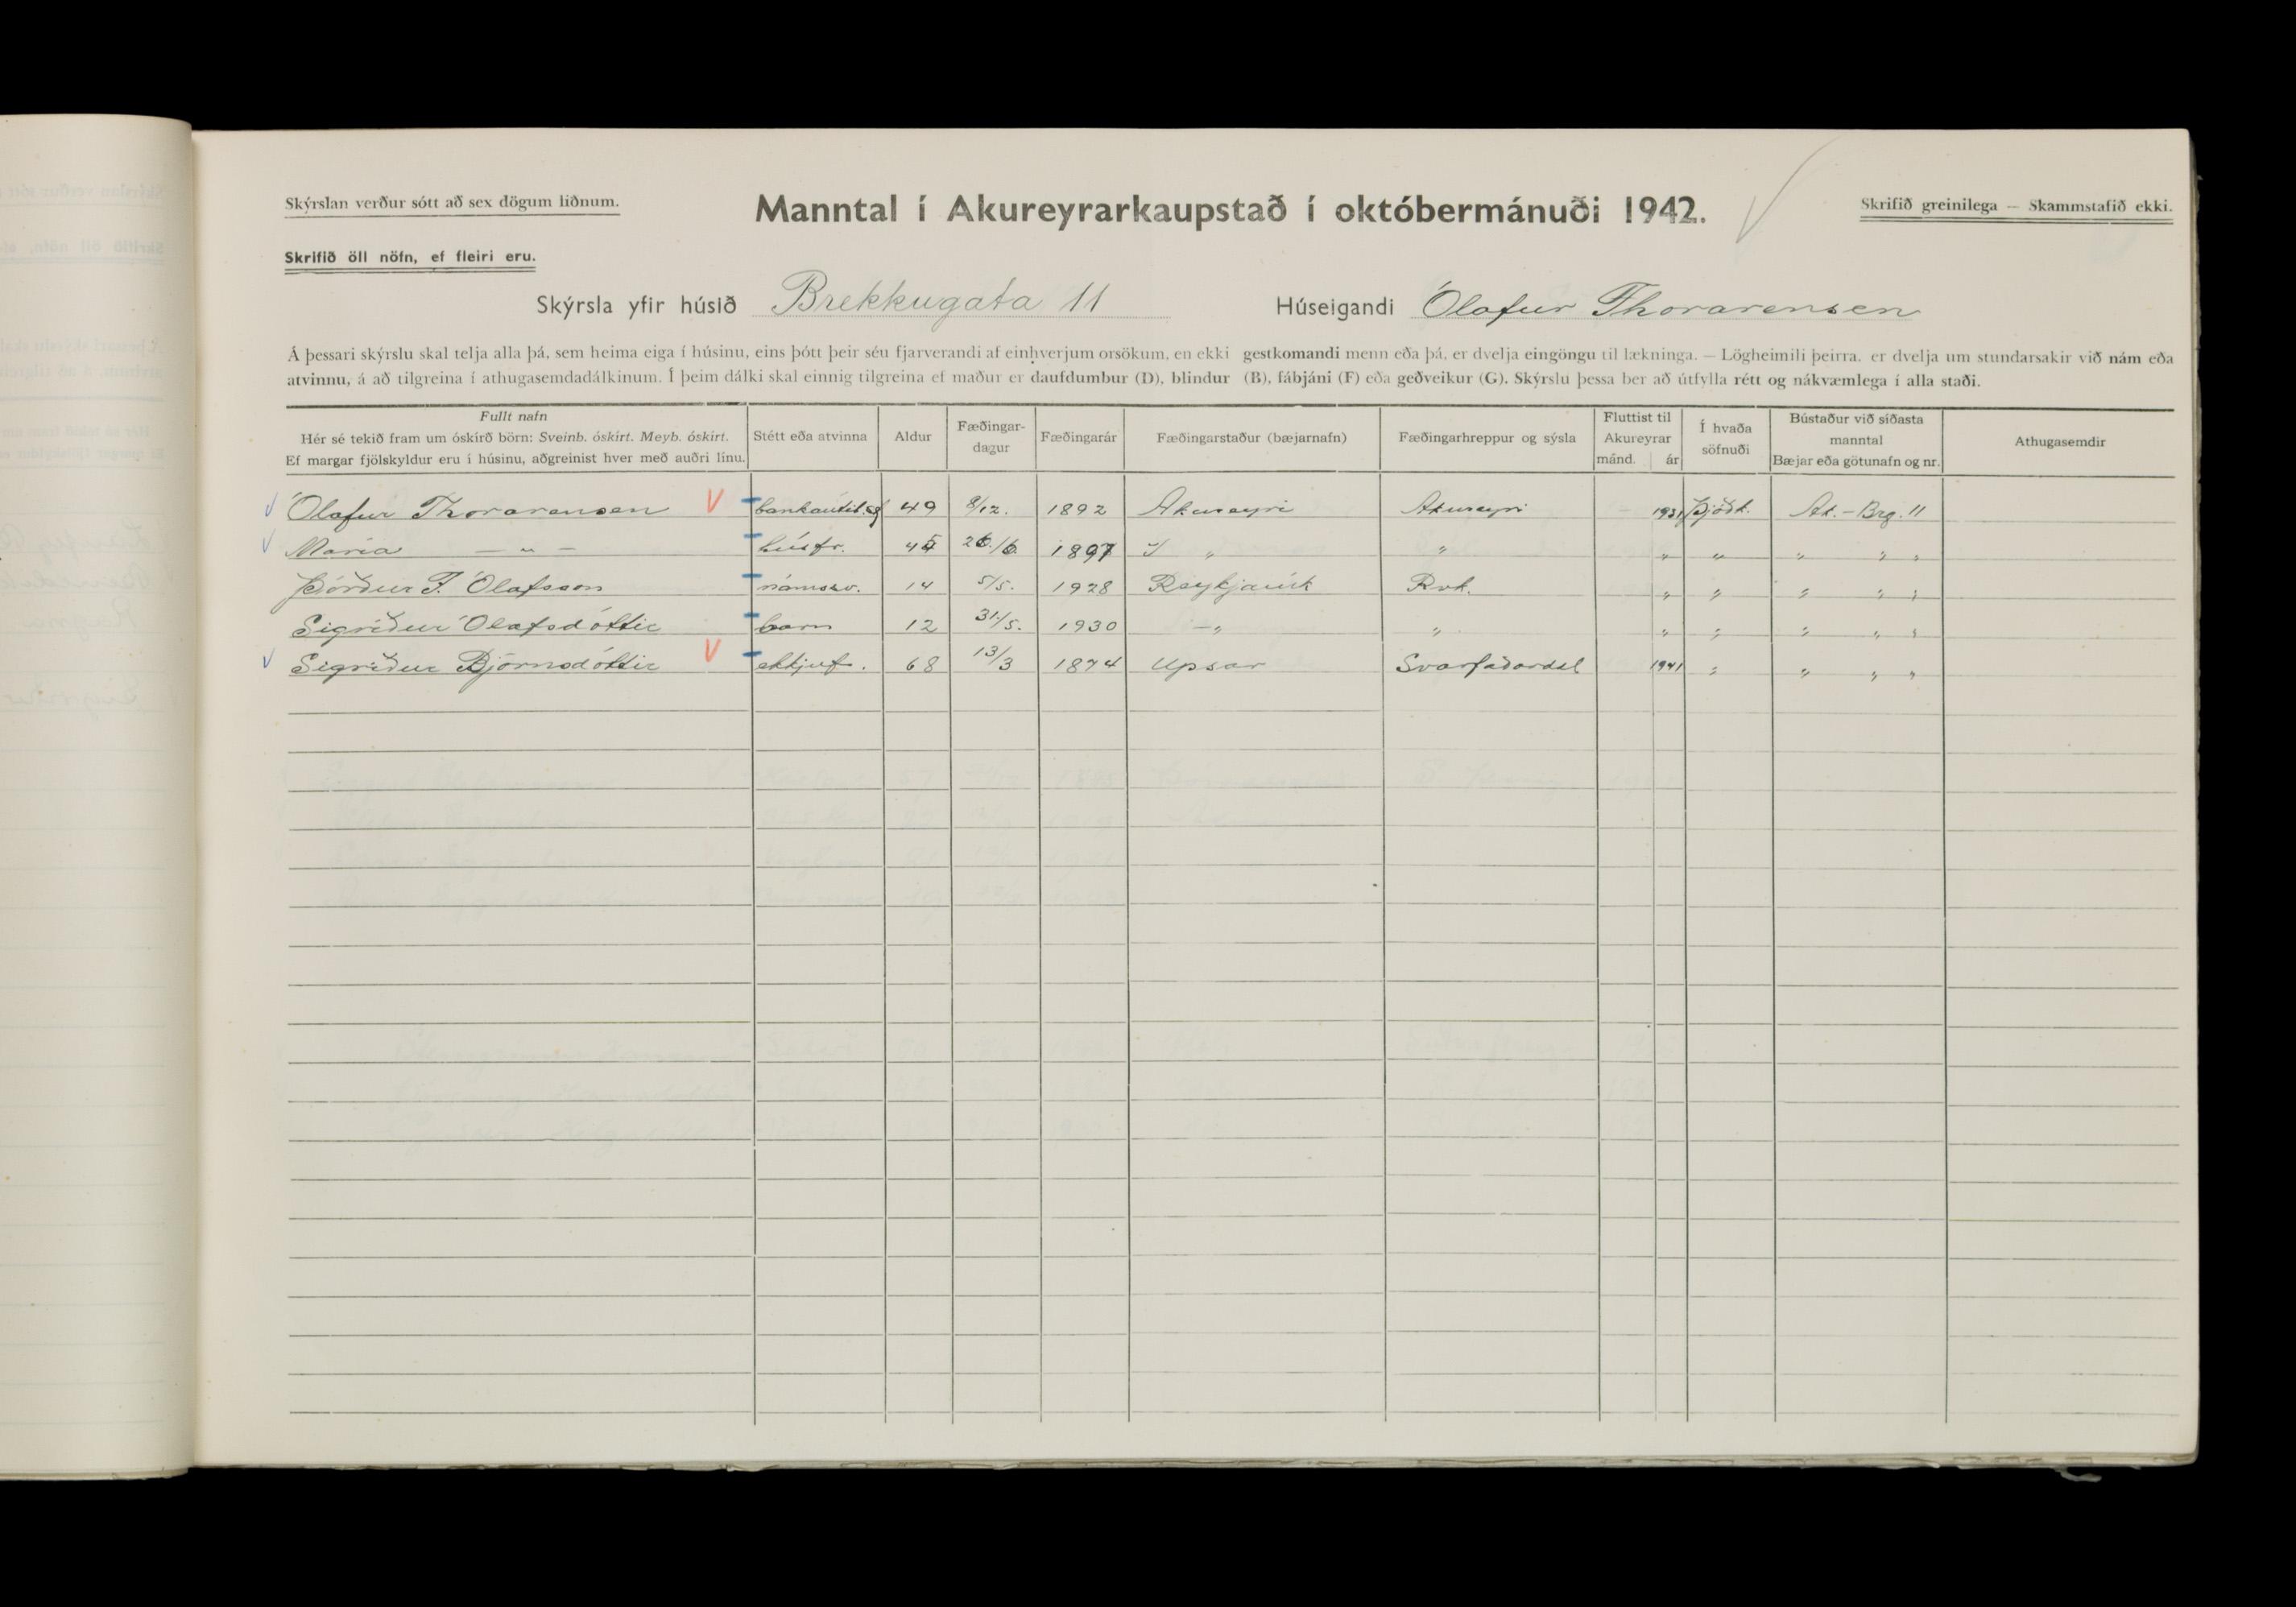 Skýrslan verður sótt að sex dögum liðnum.
Manntal í Akureyrarkaupstað í októbermánuði 1942.
Skrifið greinilega — Skammstafið ekki.
Skrifið öll nöfn, ef fleiri eru.
Skýrsla yfir húsið Brekkugata 11 Húseigandi Ólafur Thorarensen
Á þessari skýrslu skal telja alla þá, sem heima eiga í húsinu, eins þótt þeir séu fjarverandi af einhverjum orsökum, en ekki gestkomandi menn eða þá, er dvelja eingöngu til lækninga. — Lögheimili þeirra. er dvelja um stundarsakir við nám eða
atvinnu, á að tilgreina í athugasemdadálkinum. Í þeim dálki skal einnig tilgreina ef maður er daufdumbur (D), blindur (B), fábjáni (F) eða geðveikur (G). Skýrslu þessa ber að útfylla rétt og nákvæmlega í alla staði.
Fullt nafn
Hér sé tekið fram um óskírð börn: Sveinb. óskírt. Meyb. óskírt.
Ef margar fjölskyldur eru í húsinu, aðgreinist hver með auðri línu.
Stétt eða atvinna
Aldur
Fæðingar-
dagur
Fæðingarár
Fæðingarstaður (bæjarnafn)
Fæðingarhreppur og sýsla
Fluttist til
Akureyrar
mánd. ár
Í hvaða
söfnuði
Bústaður við síðasta
manntal
Bæjar eða götunafn og nr.
Athugasemdir
Ólafur Thorarensen 49 8/12. 1892 Akureyri Akureyri 1931 Þjóðk. Ak. - Brg. 11
María — " — húsfr. 45 26./6. 1897 " " " " " " "
Þórður T. Ólafsson námssv. 14 5/5. 1928 Reykjavík Rvk. " " " " "
Sigríður Ólafsdóttir barn 12 31./5. 1930 —" " " " " " "
Sigríður Björnsdóttir ekkjuf. 68 13/3 1874 Upsar Svarfaðardal 1941 " " " "